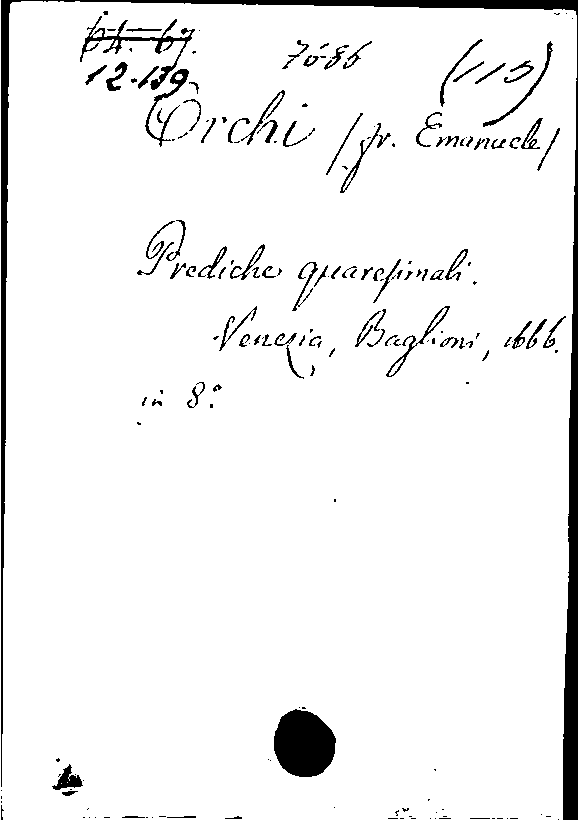 64. 67.
12-139
7686 (113)
Orchi /fr. Emanuele/
Prediche quaresimali.
Venezia, Baglioni, 1666.
in 8.°